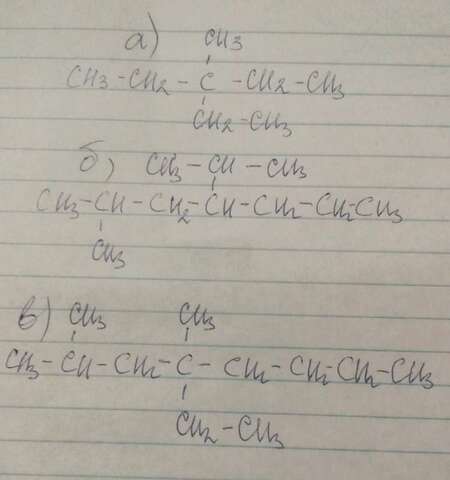 а) CH3
CH3-CH2-C-CH2-CH3
CH2-CH3
б) CH3-CH-CH3
CH3-CH-CH2-CH-CH2-CH2-CH3
CH3
в) CH3 CH3
CH3-CH-CH2-C-CH2-CH2-CH2-CH3
CH2-CH3